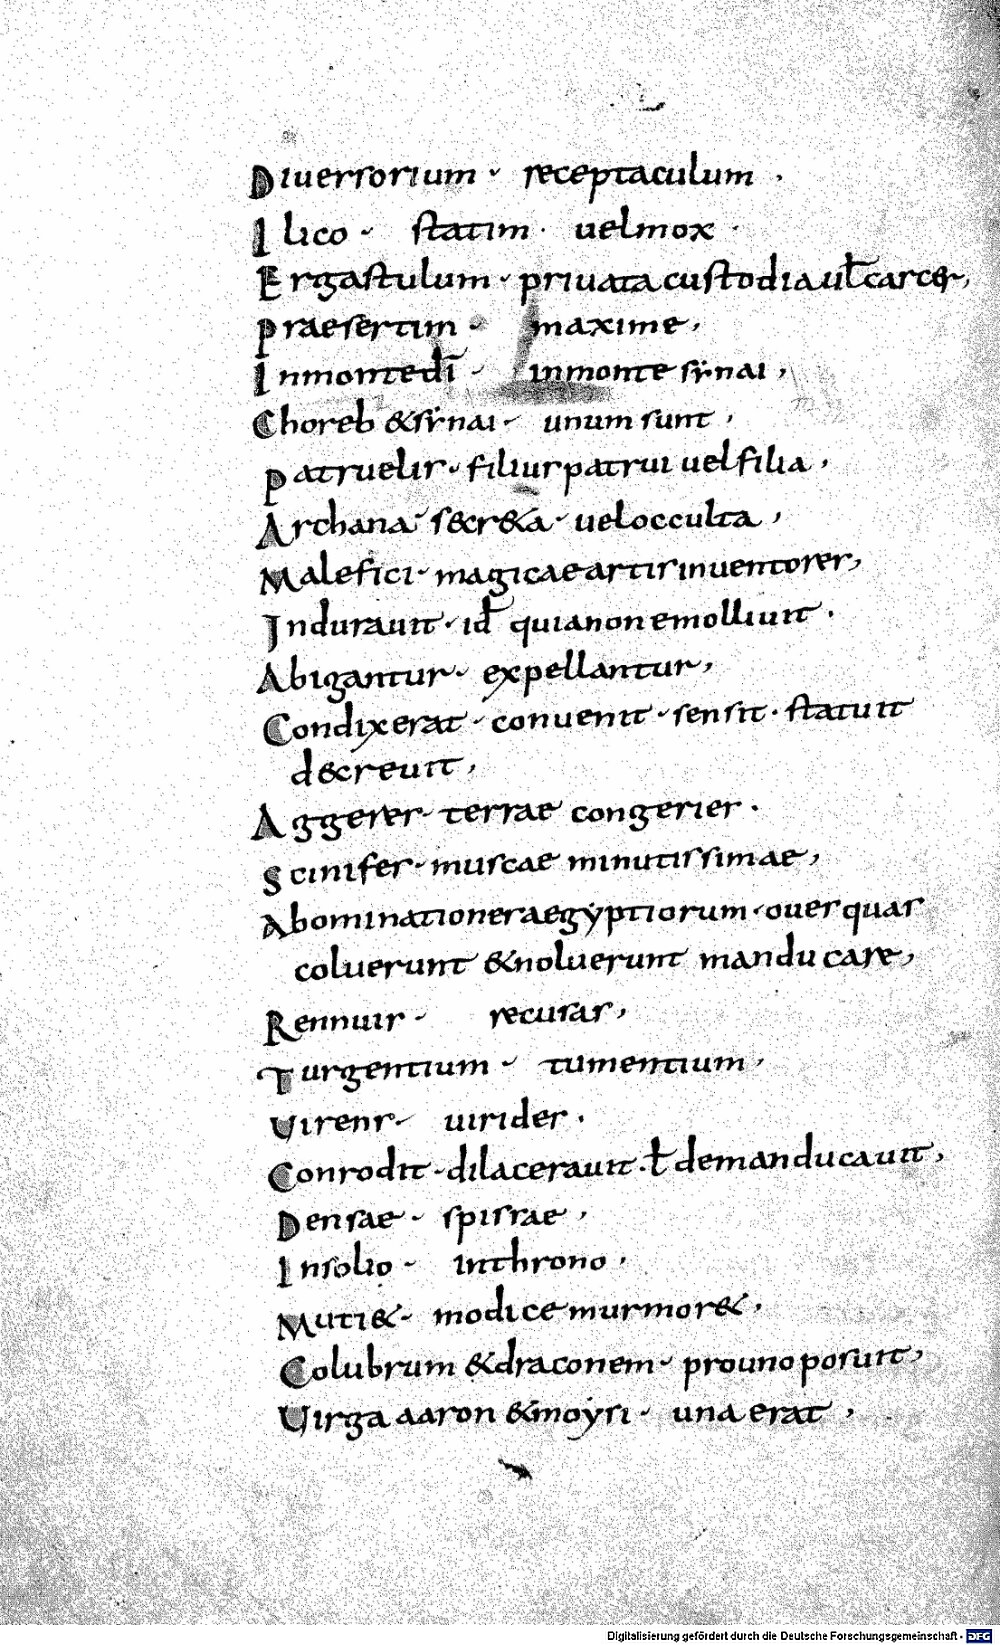 Diuersorium · receptaculum ·
Ilico · statim · uel mox ·
Ergastulum · priuata custodia ul̄ carcer,
Praesertim · maxime,
In monte dī · in monte sẏnai,
Choreb & sẏnai · unum sunt,
Patruelis · filius patrui uel filia,
Archana · secr&a · uel occulta,
Malefici · magicae artis inuentores,
Indurauit · id̄ quia non emolliuit ·
Abigantur · expellantur,
Condixerat · conuenit · sensit · statuit
decreuit,
Aggeres · terrae congeries ·
Scinifes · muscae minutissimae,
Abominationes aegẏptiorum · oues quas
coluerunt & noluerunt manducare,
Rennuis · recusas,
Turgentium · tumentium,
Uirens · uirides ·
Conrodit · dilacerauit · ł demanducauit,
Densae · spissae,
In solio · in throno,
Muti& · modice murmor&,
Colubrum & draconem · pro uno posuit,
Uirga aaron & moẏsi · una erat,
Digitalisierung gefördert durch die Deutsche Forschungsgemeinschaft - DFG